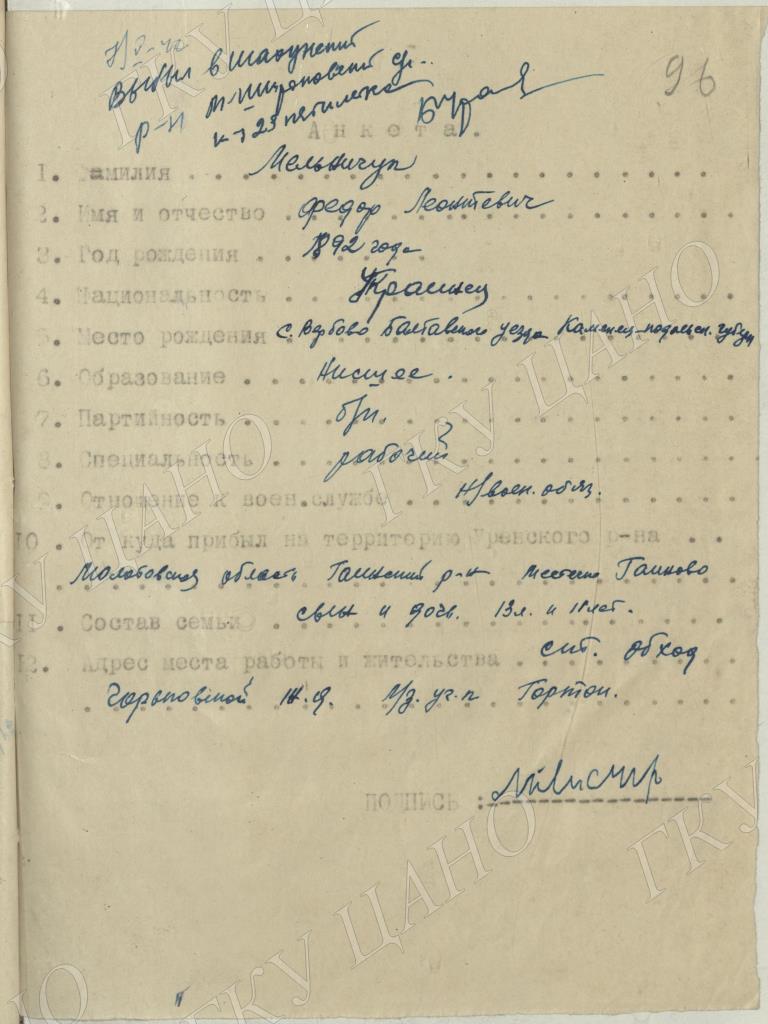 96
Выбыл в Шахунский
р-н
к-з 2я пятилетка
Анкета.
1. Фамилия . . Мельничук
2. Имя и отчество . Федор Леонтевич
3. Год рождения . . 1892 года
4. Национальность . . Украинец
5. Место рождения с. Вербово Балтавского уезда Каменец-подольск. губерн
6. Образование . . . Низшее .
7. Партийность . . . б/п.
8. Специальность . . рабочий
9. Отношение к воен.службе . . н/воен. обяз.
10. От куда прибыл на территорию Уренского р-на . .
Молотовская область Гаинский р-н местечко
11. Состав семьи сын и дочь. 13л. и 11лет.
12. Адрес места работы и жительства . сит. обход
Горьковской ж.д.
подпись :
ГКУ ЦАНО
ГКУ ЦАНО
ГКУ ЦАНО
ГКУ ЦАНО
ГКУ ЦАНО